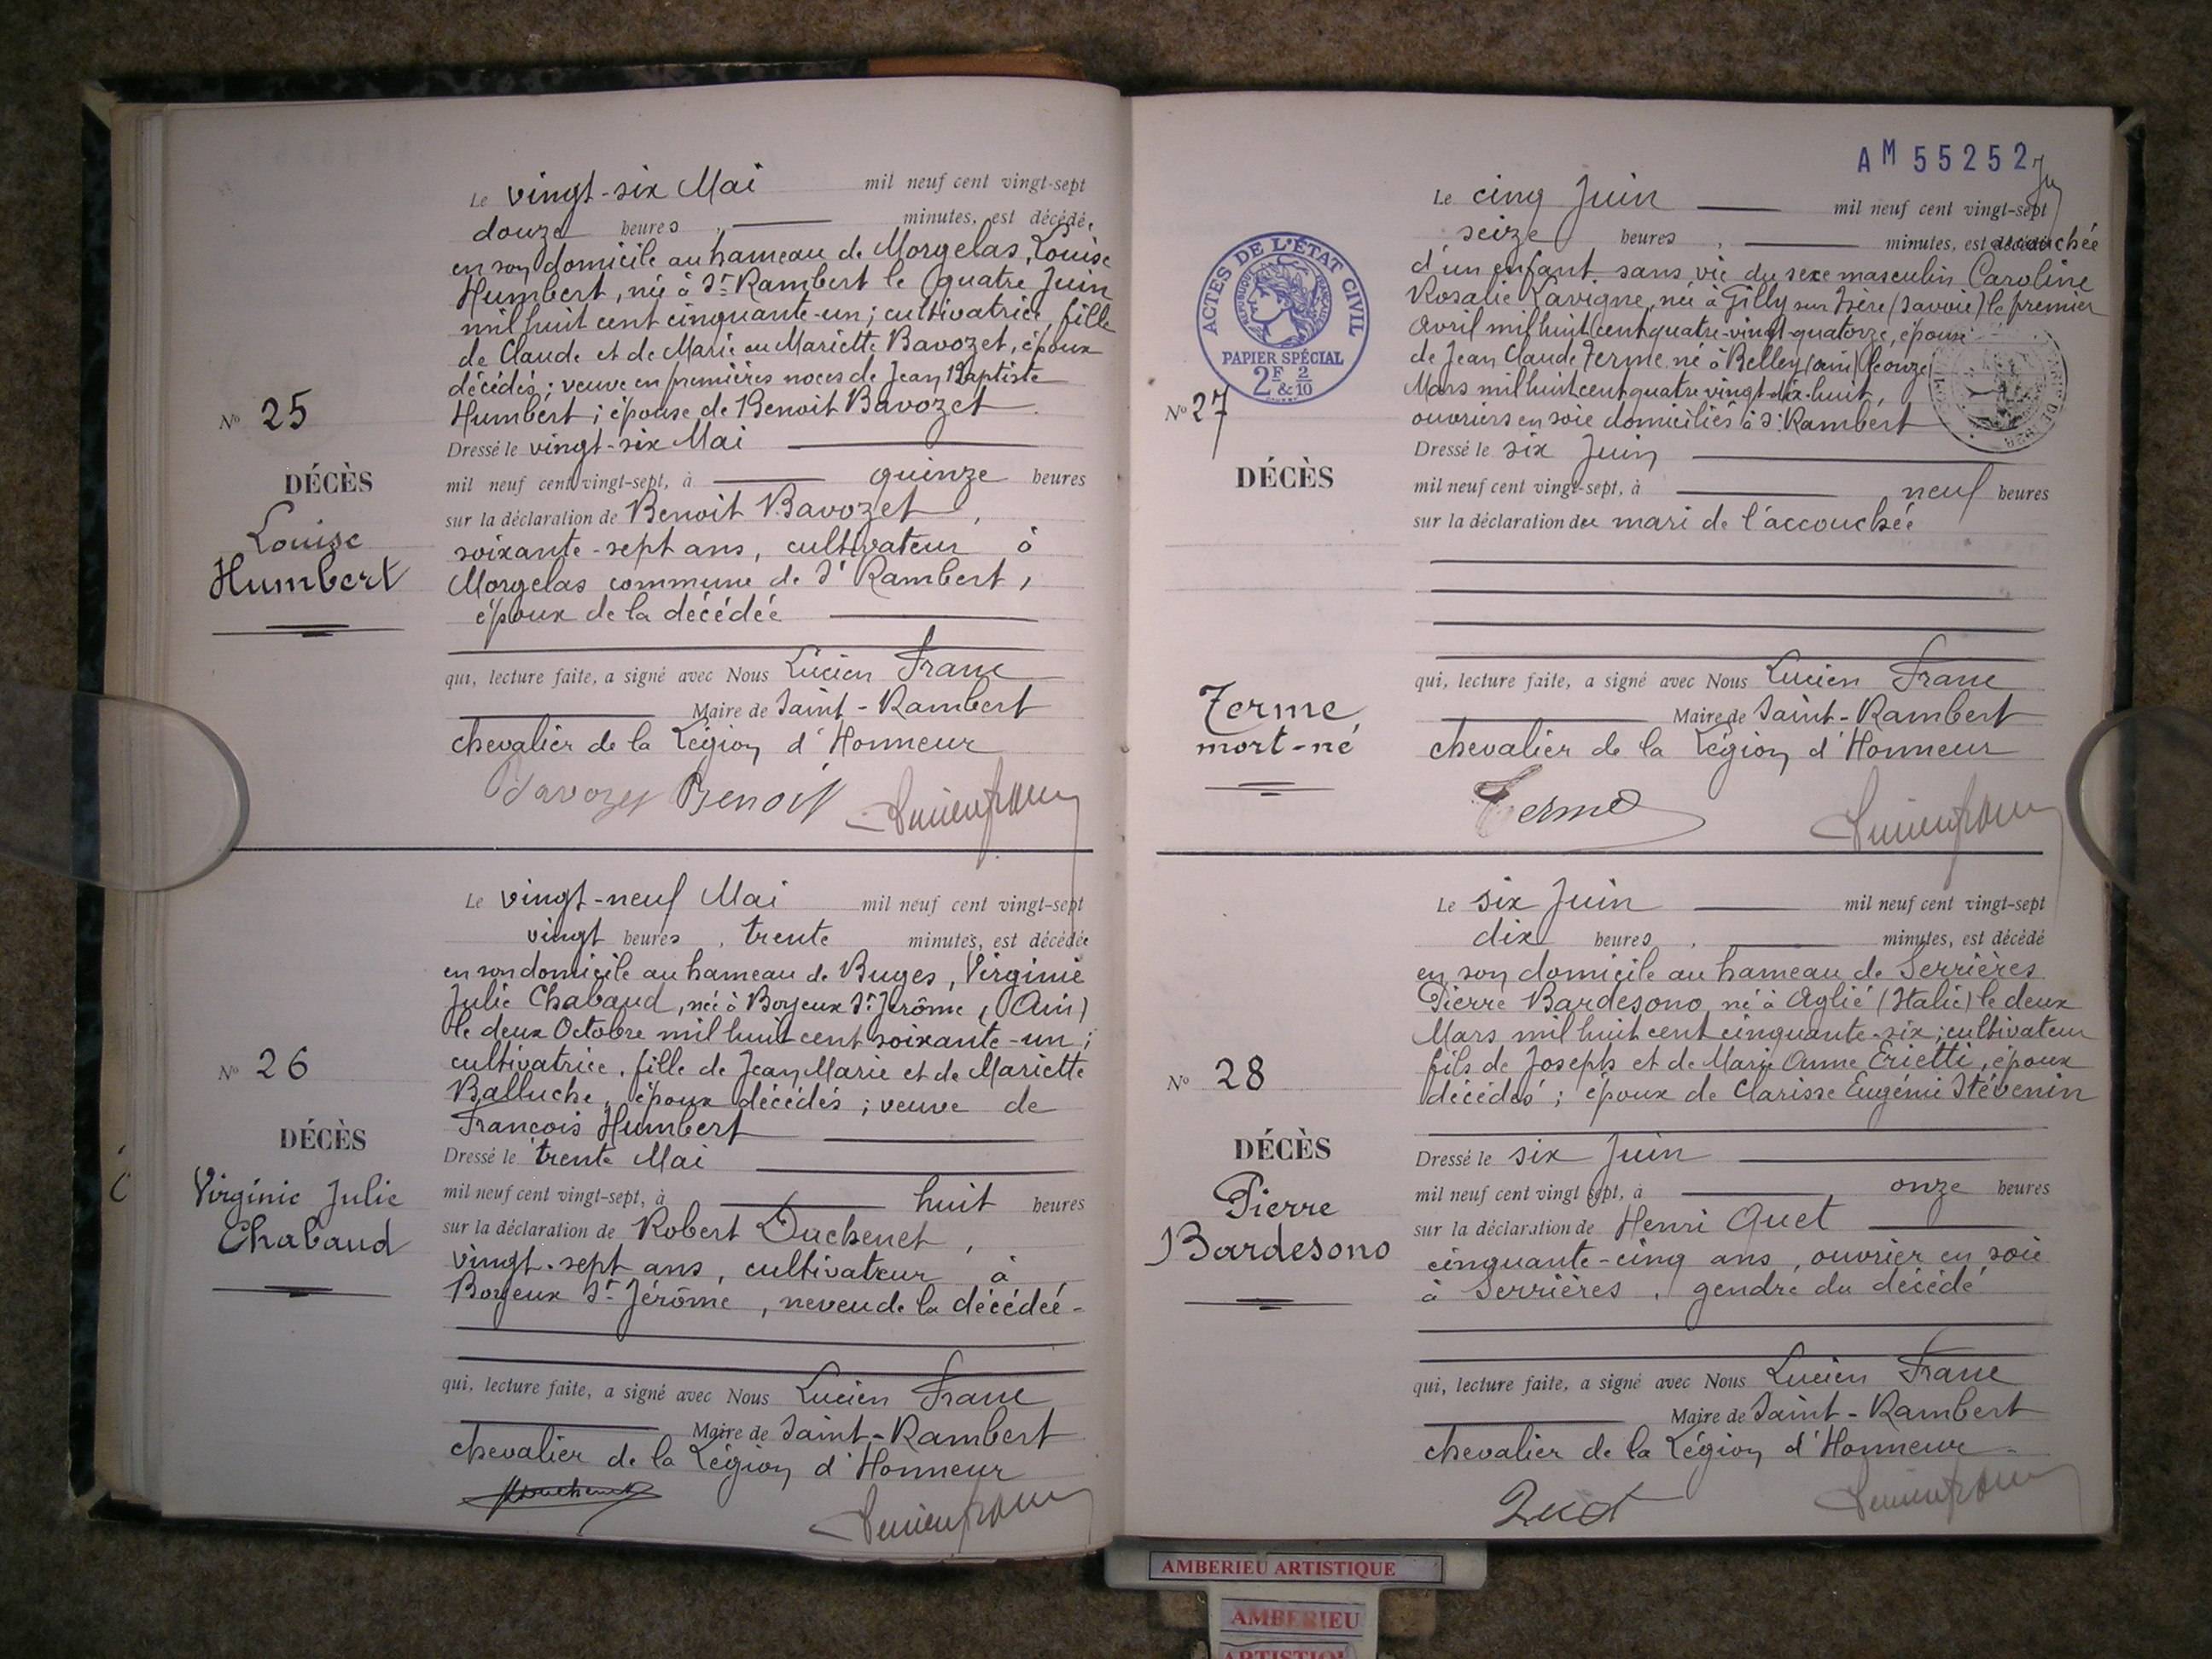 Le vingt-six Mai mil neuf cent vingt-sept
douze heures, minutes, est décédée
en son domicile au hameau de Morgelas, Louise
Humbert, née à St Rambert le quatre Juin
mil huit cent cinquante-un; cultivatrice, fille
de Claude et de Marie ou Mariette Bavozet, époux
décédés; veuve en premières noces de Jean Baptiste
N° 25
Humbert; épouse de Benoit Bavozet
Dressé le vingt-six Mai
DÉCÈS
mil neuf cent vingt-sept, à quinze heures
Louise
Humbert
sur la déclaration de Benoit Bavozet,
soixante-sept ans, cultivateur à
Morgelas commune de St Rambert,
époux de la décédée
qui, lecture faite, a signé avec Nous Lucien Franc
Maire de Saint-Rambert
chevalier de la Légion d'Honneur
Bavozet Benoit
Le vingt-neuf Mai mil neuf cent vingt-sept
vingt heures, trente minutes, est décédée
en son domicile au hameau de Buges, Virginie
Julie Chabaud, née à Boyeux St Jérôme, (Ain)
le deux Octobre mil huit cent soixante-un;
N° 26
cultivatrice, fille de Jean Marie et de Mariette
Balluche, époux décédés; veuve de
François Humbert
DÉCÈS
Dressé le trente Mai
Virginie Julie
Chabaud
mil neuf cent vingt-sept, à huit heures
sur la déclaration de Robert Duchenet,
vingt-sept ans, cultivateur à
Boyeux St Jérôme, neveu de la décédée-
qui, lecture faite, a signé avec Nous Lucien Franc
Maire de Saint-Rambert
chevalier de la Légion d'Honneur
AM 55252
ACTES DE L'ÉTAT CIVIL
PAPIER SPÉCIAL
2F & 2/10
Le cinq Juin mil neuf cent vingt-sept
seize heures, minutes, est accouchée
d'un enfant sans vie du sexe masculin Caroline
Rosalie Lavigne, née à Gilly sur Isère (Savoie) le premier
Avril mil huit cent quatre-vingt-quatorze, épouse
de Jean Claude Terme né à Belley (Ain) le onze
Mars mil huit cent quatre vingt-dix-huit,
N° 27
ouvriers en soie domiciliés à St Rambert
Dressé le six Juin
DÉCÈS
mil neuf cent vingt-sept, à neuf heures
sur la déclaration du mari de l'accouchée
Terme,
mort-né
qui, lecture faite, a signé avec Nous Lucien Franc
Maire de Saint-Rambert
chevalier de la Légion d'Honneur
Terme
Le six Juin mil neuf cent vingt-sept
dix heures, minutes, est décédé
en son domicile au hameau de Serrières
Pierre Bardesono, né à Aglié (Italie) le deux
Mars mil huit cent cinquante-six; cultivateur
fils de Joseph et de Marie Anne Erietti, époux
N° 28
décédés; époux de Clarisse Eugénie Stévenin
DÉCÈS
Dressé le six Juin
Pierre
Bardesono
mil neuf cent vingt sept, à onze heures
sur la déclaration de Henri Quet
cinquante-cinq ans, ouvrier en soie
à Serrières, gendre du décédé
qui, lecture faite, a signé avec Nous Lucien Franc
Maire de Saint-Rambert
chevalier de la Légion d'Honneur
Quet
AMBERIEU ARTISTIQUE
AMBERIEU
ARTISTIQUE